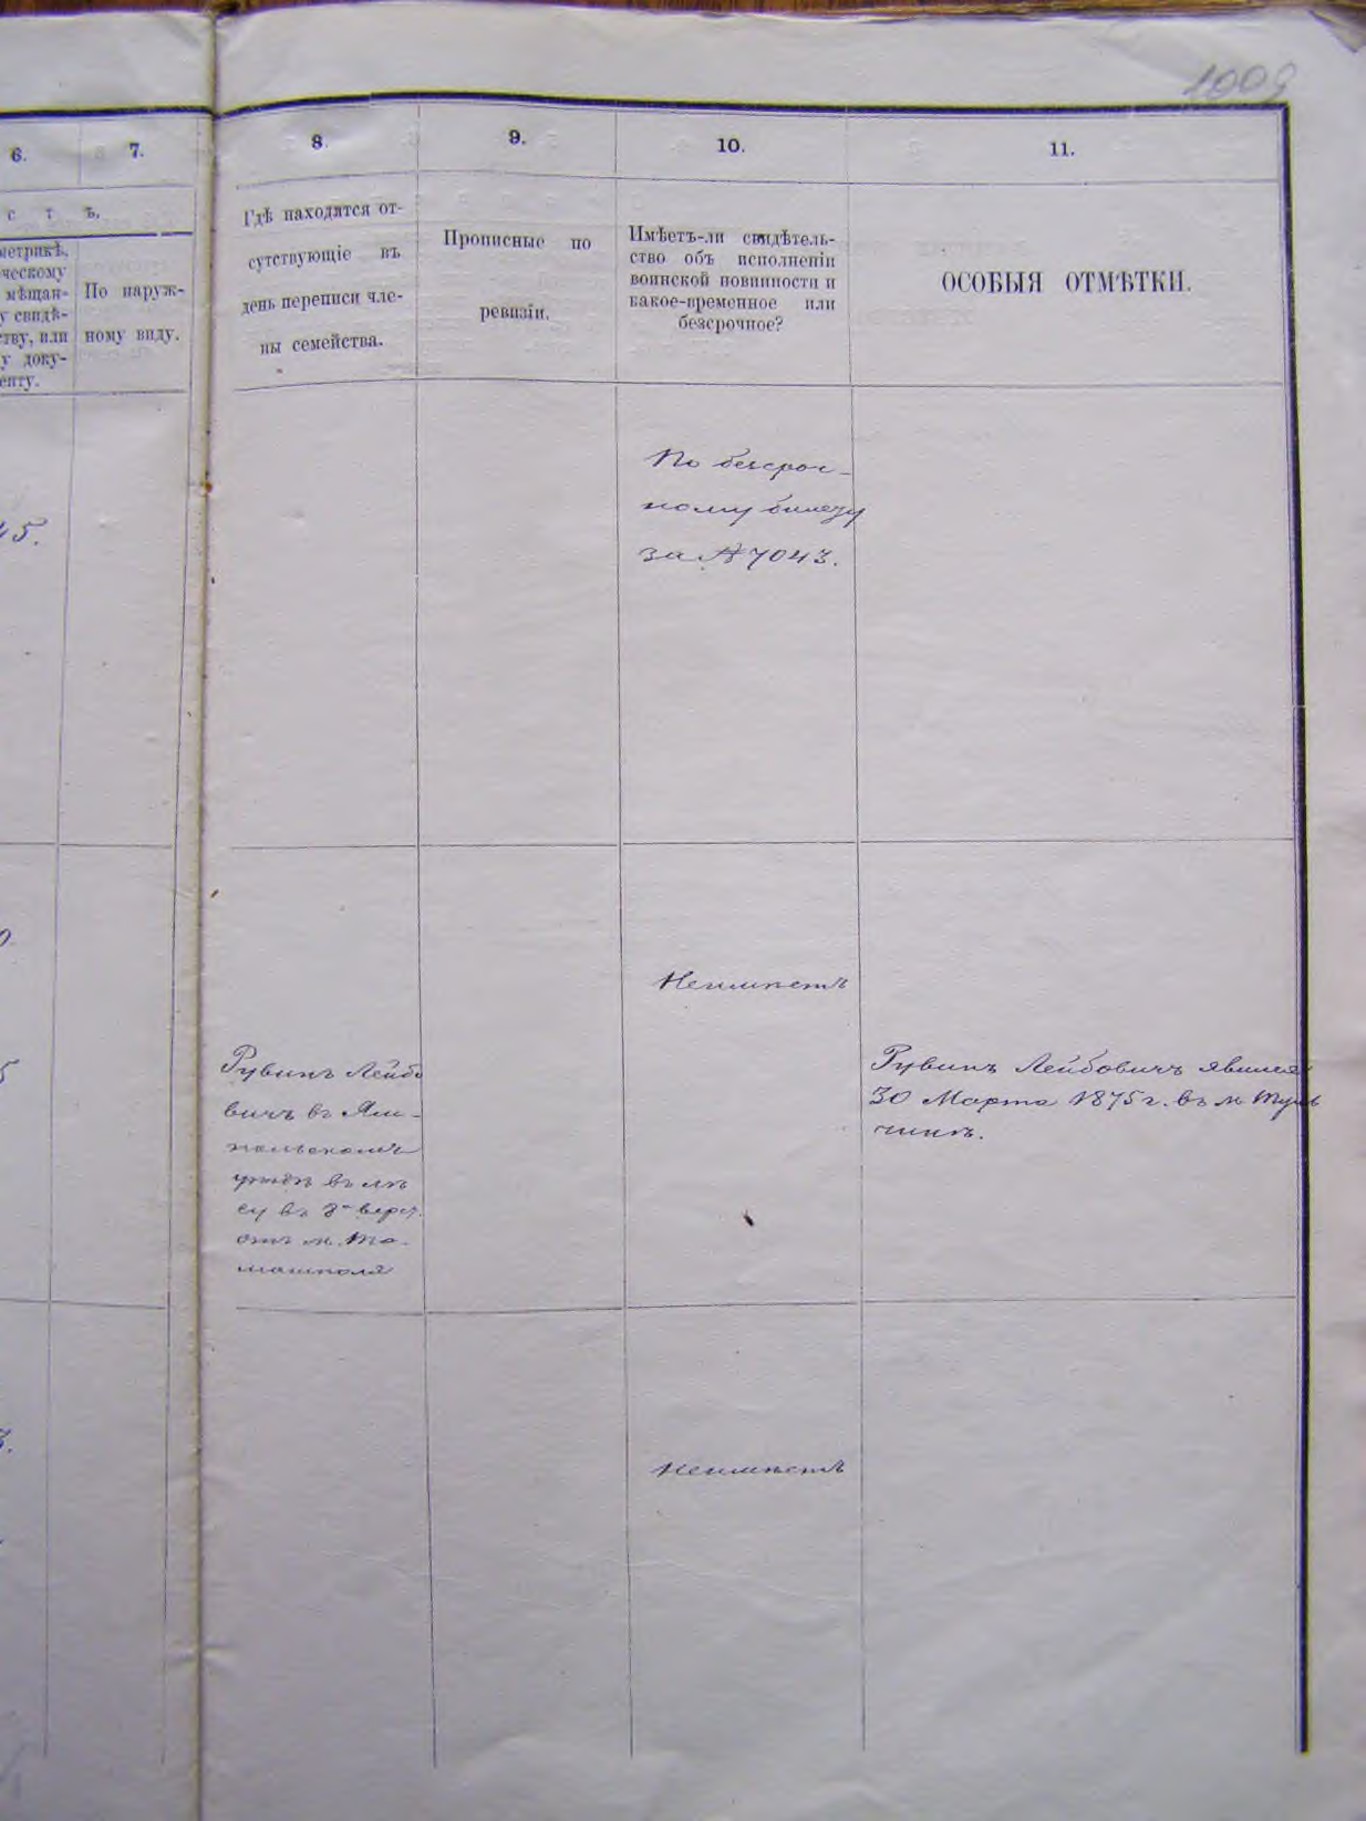 1009
6.
7.
8
9.
10.
11.
с т ъ.
метрикѣ,
ческому
мѣщан-
у свидѣ-
тву, или
у доку-
енту.
По наруж-
ному виду.
Гдѣ находятся от-
сутствующіе въ
день переписи чле-
ны семейства.
Прописные по
ревизіи.
Имѣетъ-ли свидѣтель-
ство объ исполненіи
воинской повинности и
какое-временное или
безсрочное?
ОСОБЫЯ ОТМѢТКИ.
По безсроч-
ному билету
за № 7043.
45.
0
Неимѣетъ
5
Рувинъ Лейбо
вичъ въ Ям-
польскомъ
уѣздѣ въ лѣ
су въ 8 верст.
отъ м. То-
машполя
Рувинъ Лейбовичъ явился
30 Марта 1875 г. въ м. Туль
чинѣ.
3.
Неимѣетъ